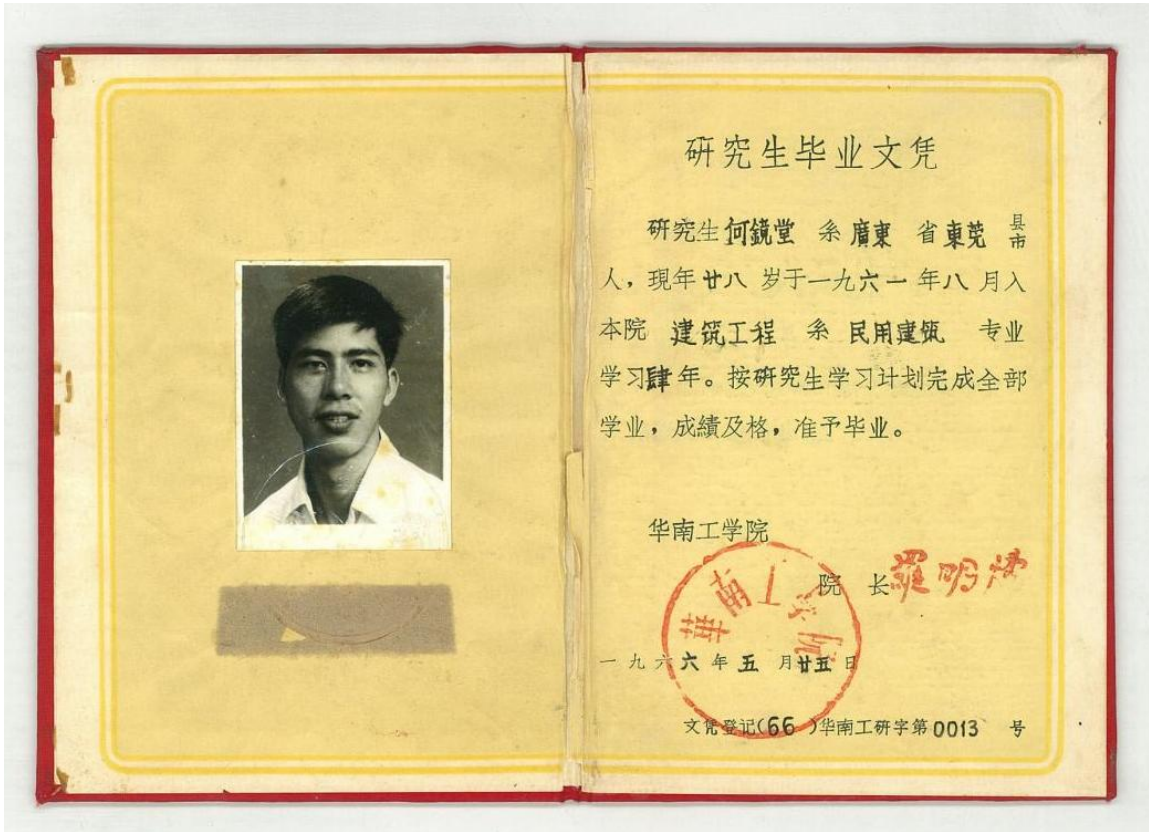 研究生毕业文凭
研究生何鏡堂 系廣東 省東莞 县市
人，現年廿八 岁于一九六一 年八 月入
本院 建筑工程 系 民用建筑 专业
学习肆年。按研究生学习计划完成全部
学业，成績及格，准予毕业。
华南工学院
院 长 羅明
華南工学院
一九六六年五 月廿五日
文凭登记(66)华南工研字第0013 号